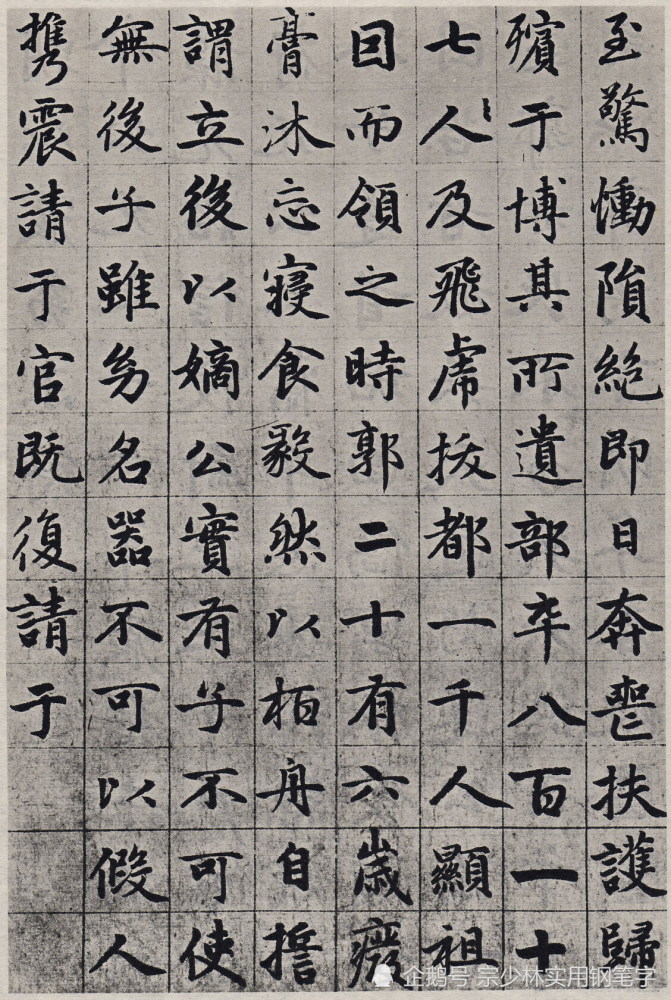 至驚慟隕絕即日奔喪扶護歸
殯于博其所遺部卒八百一十
七人及飛虎拔都一千人顯祖
因而領之時郭二十有六歲廢
膏沐忘寢食毅然以栢舟自誓
謂立後以嫡公實有子不可使
無後子雖幼名器不可以假人
携震請于官既復請于
企鹅号 宗少林实用钢笔字